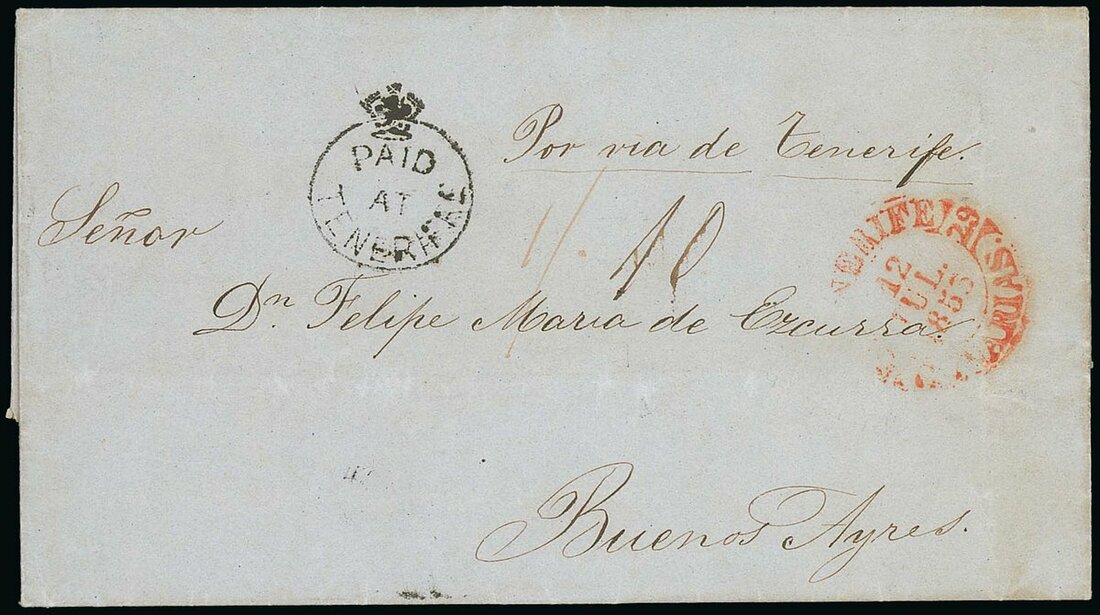 PAID
AT
TENERIFFE
Por via de Tenerife.
Señor
1/.
10
Dn Felipe Maria de Ezcurra.
Buenos Ayres.
12
JUL.
1855